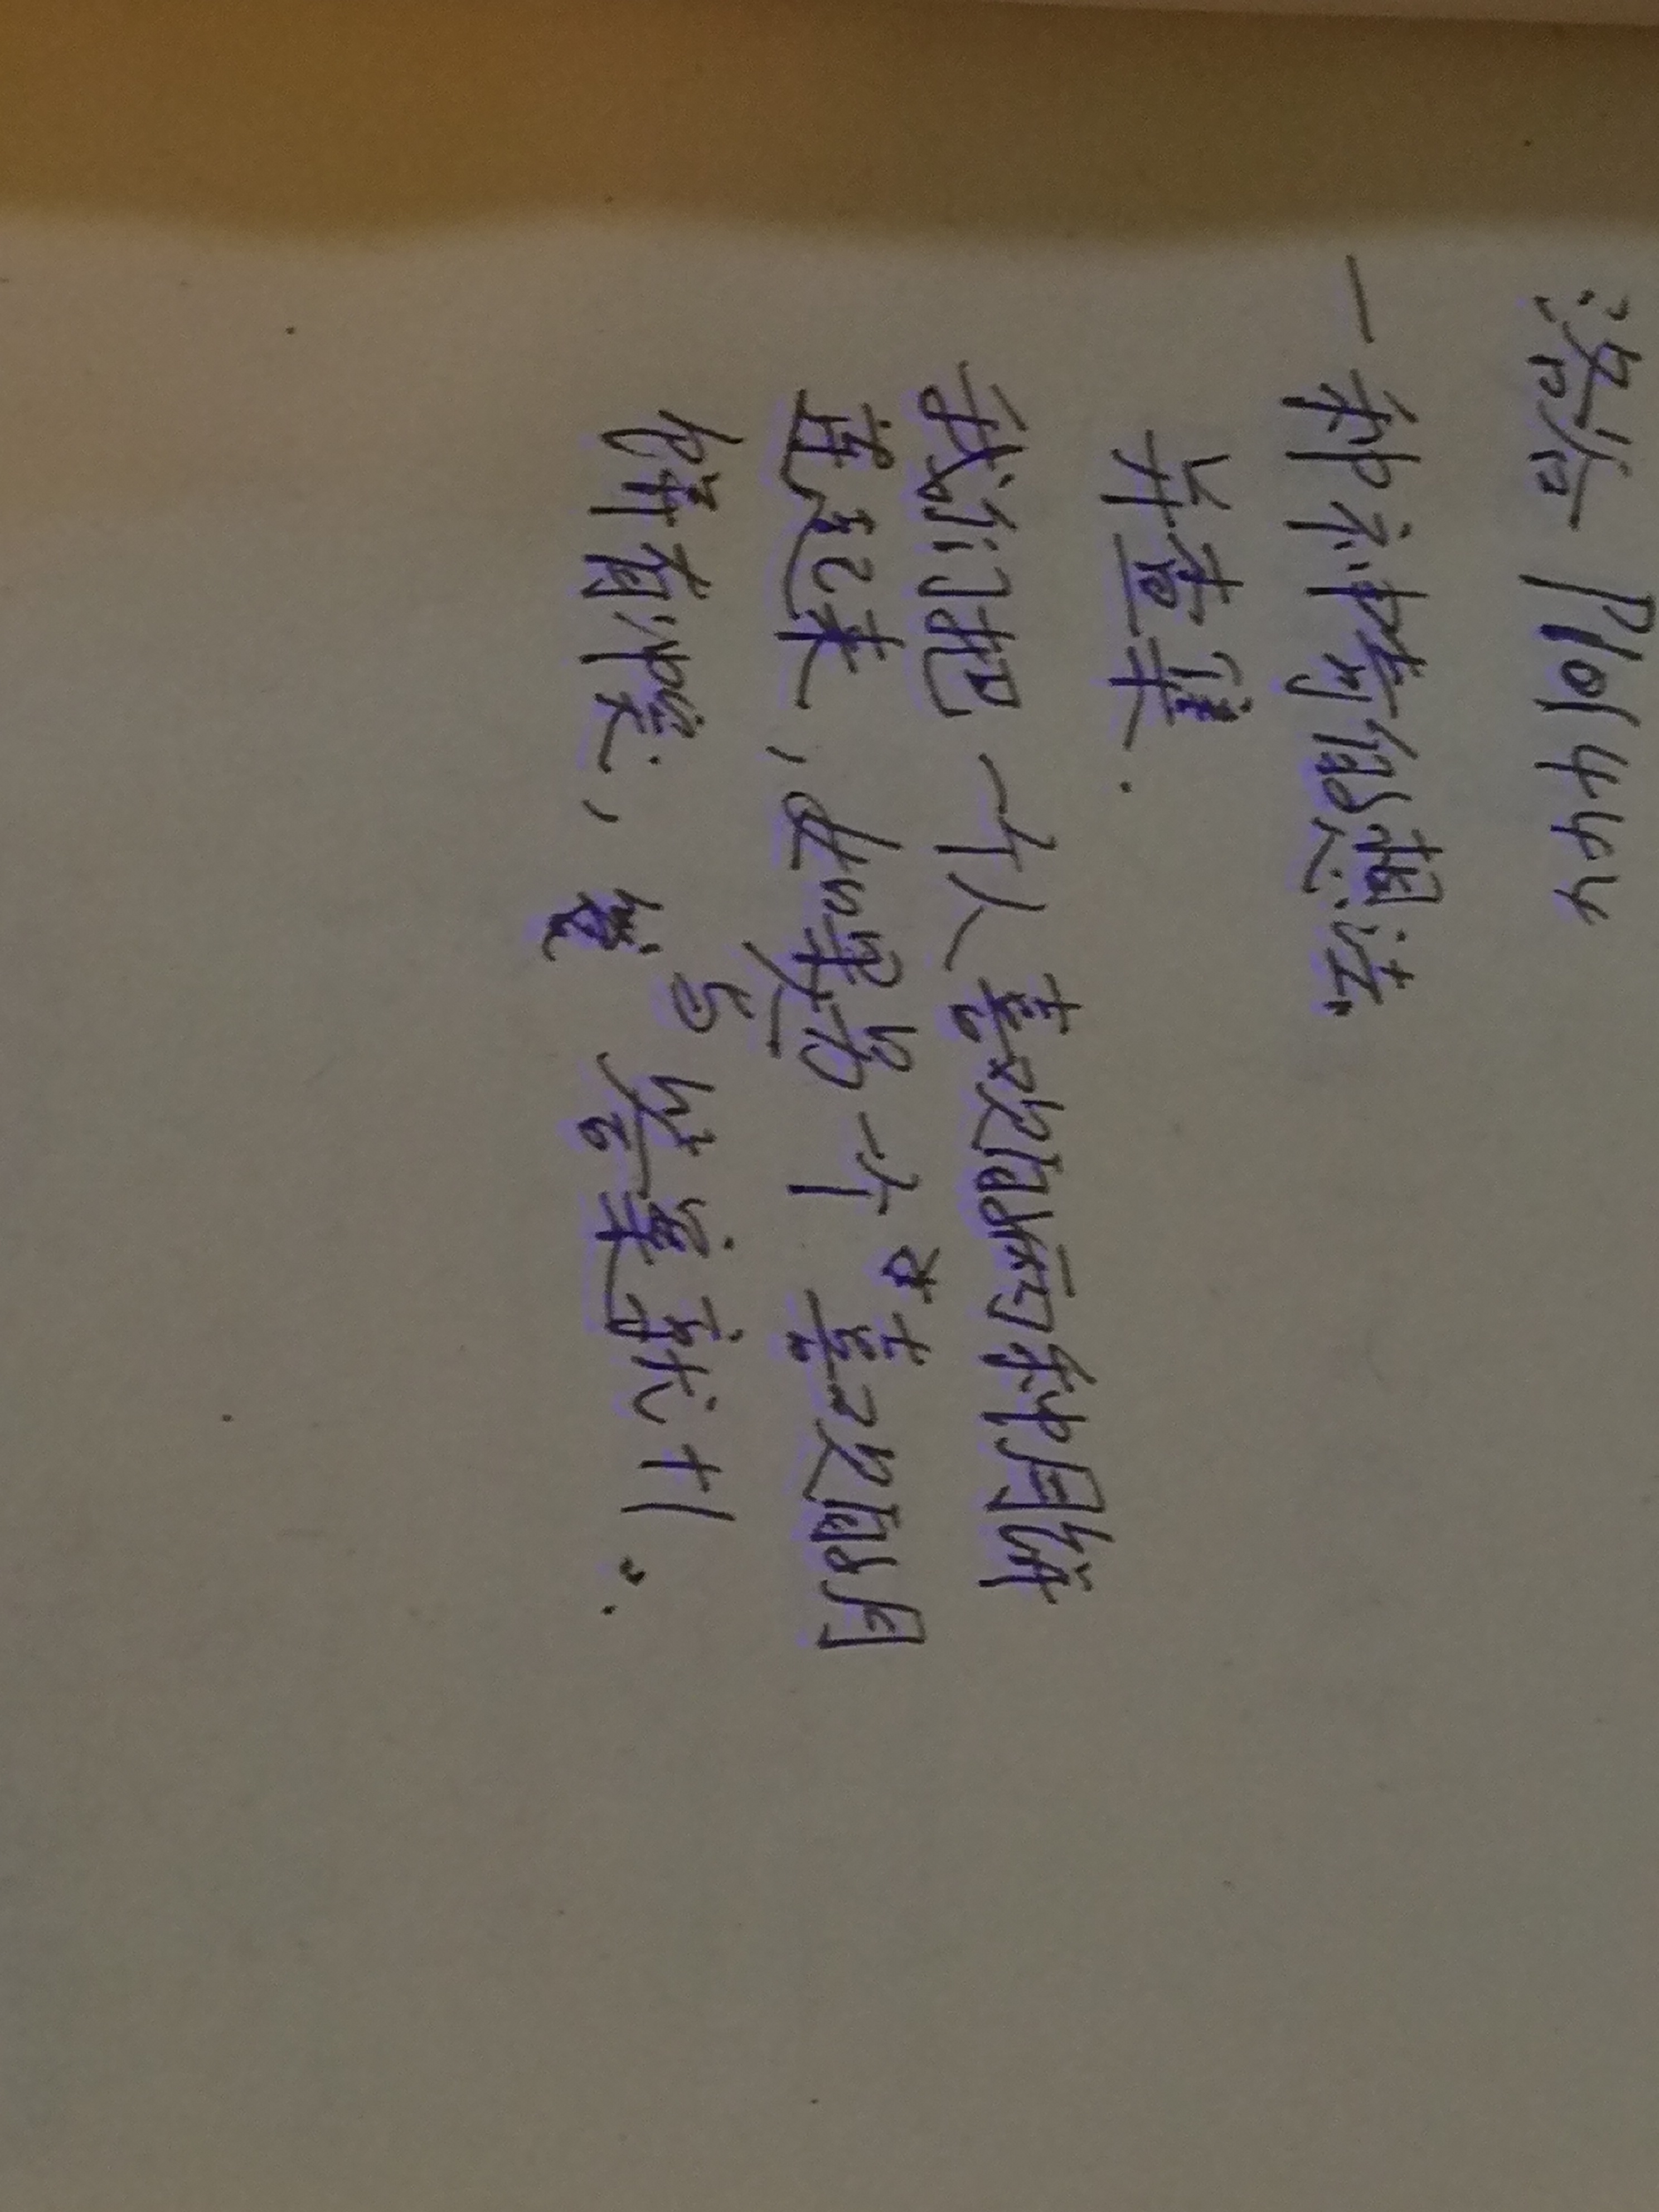 洛谷 P101444
一种神奇的想法
并查集.
我们把一个人喜欢的两种月饼
连起来,如果另一个人喜欢的月
饼有冲突,与答案就+1。.